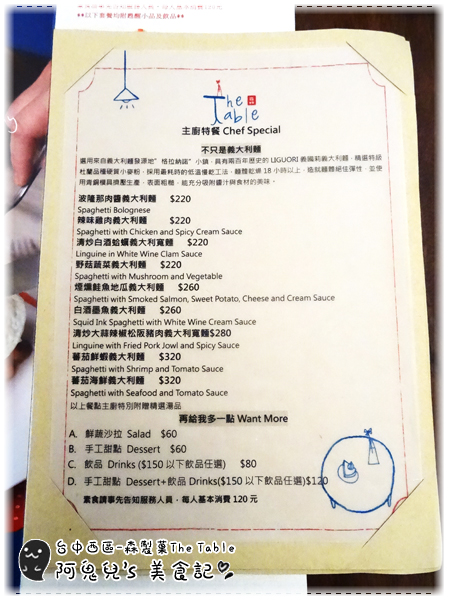 **以下套餐均附舊醋小品及飲品**
The Table
主廚特餐 Chef Special
不只是義大利麵
選用來自義大利麵發源地"格拉納諾"小鎮,具有兩百年歷史的 LIGUORI 義國莉義大利麵,精選特級
杜蘭品種硬質小麥粉,採用最耗時的低溫慢乾工法,麵體乾燥 18 小時以上,造就麵體絕佳彈性,並使
用青銅模具擠壓生產,表面粗糙,能充分吸附醬汁與食材的美味。
波隆那肉醬義大利麵 $220
Spaghetti Bolognese
辣味雞肉義大利麵 $220
Spaghetti with Chicken and Spicy Cream Sauce
清炒白酒蛤蠣義大利寬麵 $220
Linguine in White Wine Clam Sauce
野菇蔬菜義大利麵 $220
Spaghetti with Mushroom and Vegetable
煙燻鮭魚地瓜義大利麵 $260
Spaghetti with Smoked Salmon, Sweet Potato, Cheese and Cream Sauce
白酒墨魚義大利麵 $260
Squid Ink Spaghetti with White Wine Cream Sauce
清炒大蒜辣椒松阪豬肉義大利寬麵$280
Linguine with Fried Pork Jowl and Spicy Sauce
蕃茄鮮蝦義大利麵 $320
Spaghetti with Shrimp and Tomato Sauce
蕃茄海鮮義大利麵 $320
Spaghetti with Seafood and Tomato Sauce
以上餐點主廚特別附贈精選湯品
再給我多一點 Want More
A. 鮮蔬沙拉 Salad $60
B. 手工甜點 Dessert $60
C. 飲品 Drinks ($150 以下飲品任選) $80
D. 手工甜點 Dessert+飲品 Drinks($150 以下飲品任選)$120
素食請事先告知服務人員,每人基本消費 120 元
台中西區-森製菓The Table
阿鬼兒's 美食記